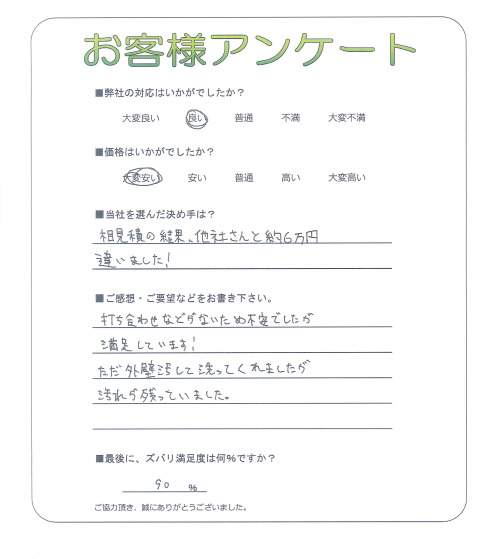 お客様アンケート
■弊社の対応はいかがでしたか？
大変良い 良い 普通 不満 大変不満
■価格はいかがでしたか？
大変安い 安い 普通 高い 大変高い
■当社を選んだ決め手は？
相見積の結果、他社さんと約6万円
違いました!
■ご感想・ご要望などをお書き下さい。
打ち合わせなどがないため不安でしたが
満足しています!
ただ外壁汚して洗ってくれましたが
汚れが残っていました。
■最後に、ズバリ満足度は何%ですか？
90 %
ご協力頂き、誠にありがとうございました。